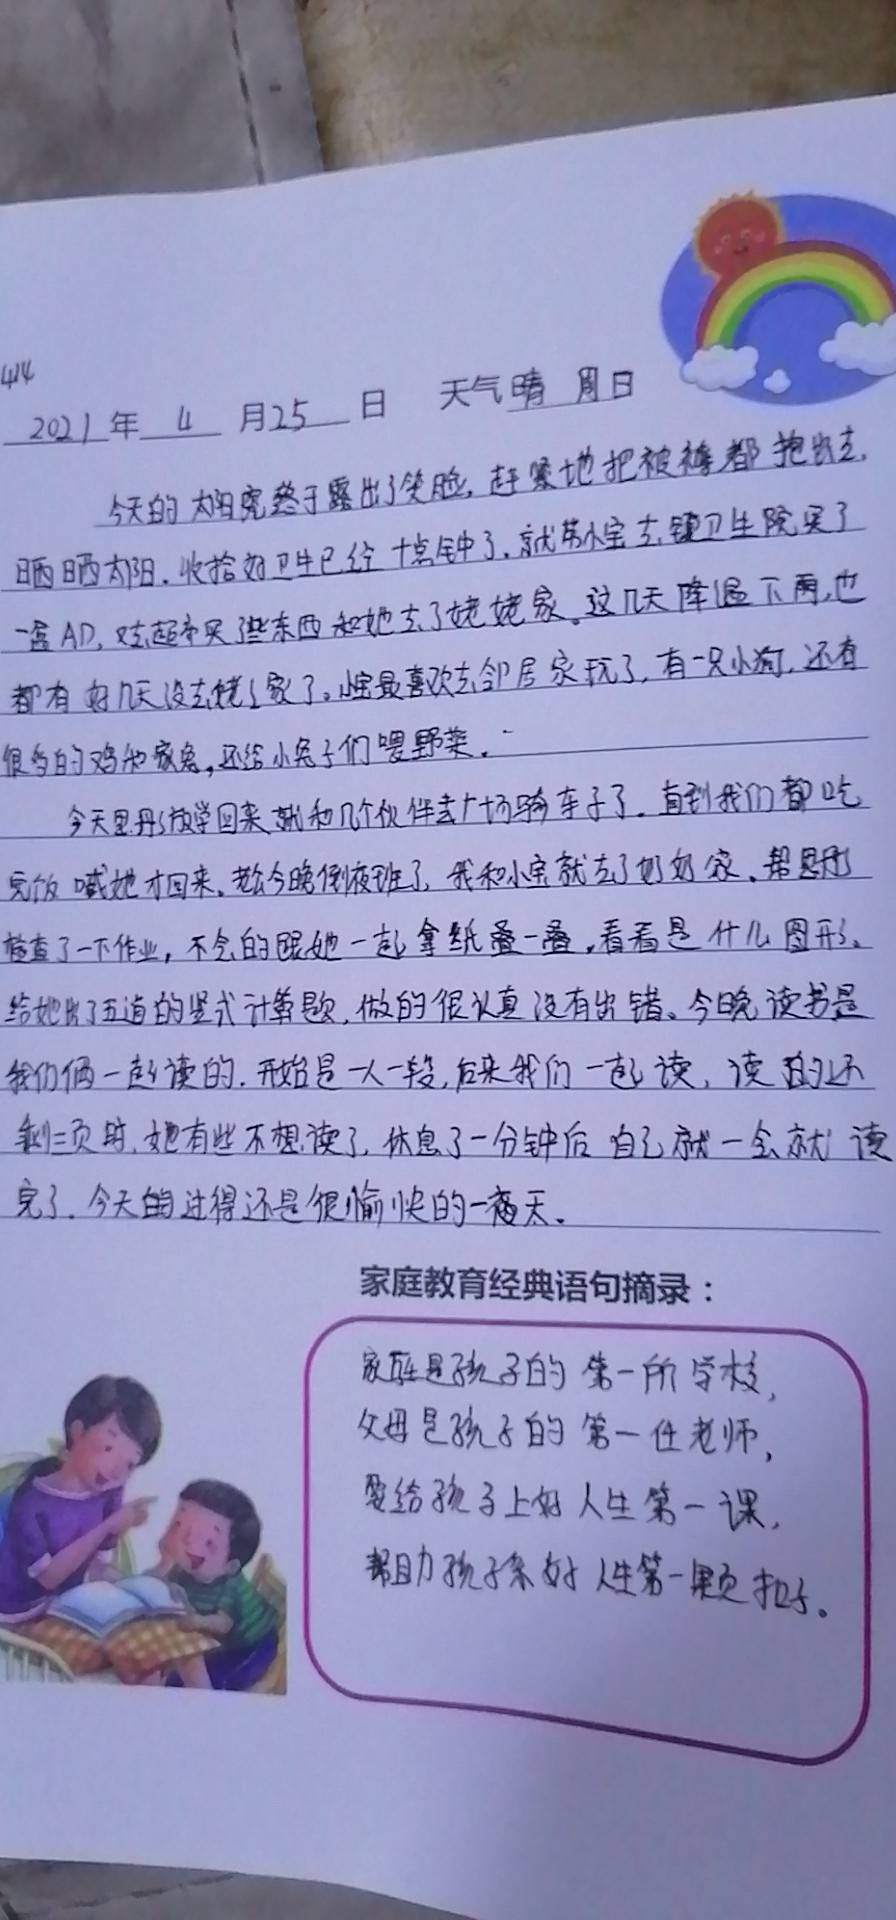 414
2021年 4 月25 日 天气晴 周日
今天的太阳竟终于露出了笑脸,赶紧地把被褥都抱出去,
晒晒太阳.收拾好卫生已经十点钟了.就带小宝去镇卫生院买了
一盒AD,又去超市买了些东西和她去了姥姥家。这几天降温下雨,也
都有好几天没去姥姥家了。小宝最喜欢去邻居家玩了,有一只小狗,还有
很多的鸡和家兔,还给小兔子们喂野菜.
今天 放学回来就和几个伙伴去广场骑车子了.直到我们都吃
完饭喊她才回来.老公今晚倒夜班了,我和小宝就去了奶奶家.帮
检查了一下作业,不会的跟她一起拿纸叠一叠,看看是什么图形.
给她出了五道的竖式计算题,做的很认真没有出错。今晚读书是
我们俩一起读的.开始是一人一段,后来我们一起读,读的还
剩三页时,她有些不想读了,休息了一分钟后自己就一会就读
完了.今天的过得还是很愉快的一天.
家庭教育经典语句摘录:
家庭是孩子的第一所学校,
父母是孩子的第一任老师,
要给孩子上好人生第一课,
帮助孩子系好人生第一颗扣子。